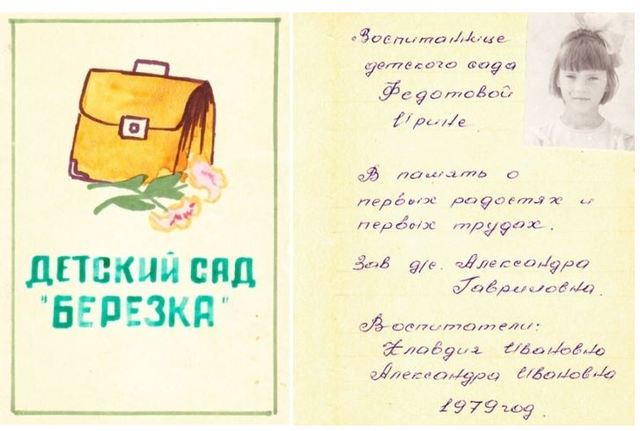 ДЕТСКИЙ САД
"БЕРЕЗКА"
Воспитаннице
детского сада
Федотовой
Ирине.
В память о
первых радостях и
первых трудах.
Зав д/с. Александра
Гавриловна.
Воспитатели:
Клавдия Ивановна
Александра Ивановна
1979 год.